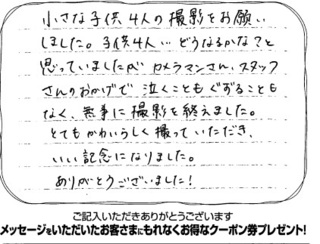 小さな子供4人の撮影をお願い
しました。子供4人…どうなるかな?と
思っていましたがカメラマンさん、スタッフ
さんのおかげで泣くこともぐずることも
なく、無事に撮影を終えました。
とてもかわいらしく撮っていただき、
いい記念になりました。
ありがとうございました!
ご記入いただきありがとうございます
メッセージをいただいたお客さまにもれなくお得なクーポン券プレゼント!